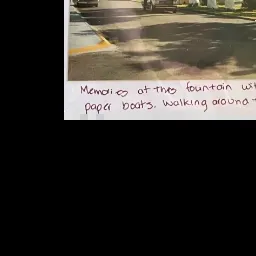 Memories at the fountain wi
paper boats. Walking around